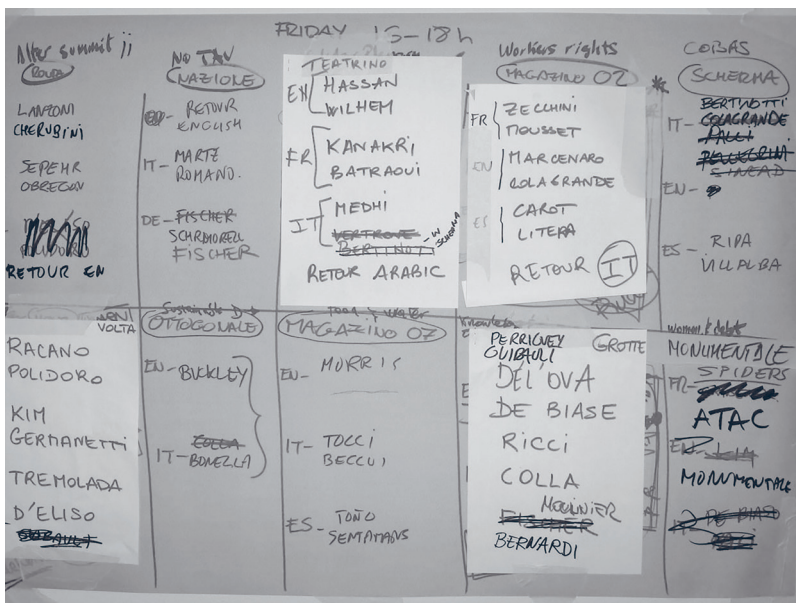 FRIDAY 15-18h
After summit
RONDA
LANZONI
CHERUBINI
SEPEHR
OBREGON
RETOUR EN
NO TAV
NAZIONE
RETOUR
ENGLISH
IT- MARTZ
ROMANO.
DE- FISCHER
FISCHER
TEATRINO
EN HASSAN
WILHEM
FR KANAKRI
BATRAOUI
IT MEDHI
BERTINOT
RETOUR ARABIC
Workers rights
MAGAZINO 02
FR ZECCHINI
MOUSSET
EN MARCENARO
COLAGRANDE
ES CAROT
LITERA
RETOUR IT
COBAS
SCHERMA
BERTINOTTI
IT- COLAGRANDE
PALLI
PELLEGRIM
SINEAD
EN-
ES- RIPA
VILLALBA
VOLTA
RACANO
POLIDORO
KIM
GERMANETTI
TREMOLADA
D'ELISO
OTTOGONALE
EN- BUCKLEY
COLLA
IT- BONELLA
MAGAZINO 07
EN- MORRIS
IT- TOCCI
BECCUI
ES- TOÑO
PERRIGUEY
GUIBAULT
GROTTE
DEL'OVA
DE BIASE
RICCI
COLLA
MOUNIER
FISCHER
BERNARDI
MONUMENTALE
SPIDERS
FR-
ATAC
MONUMENTALE
DE BIASO